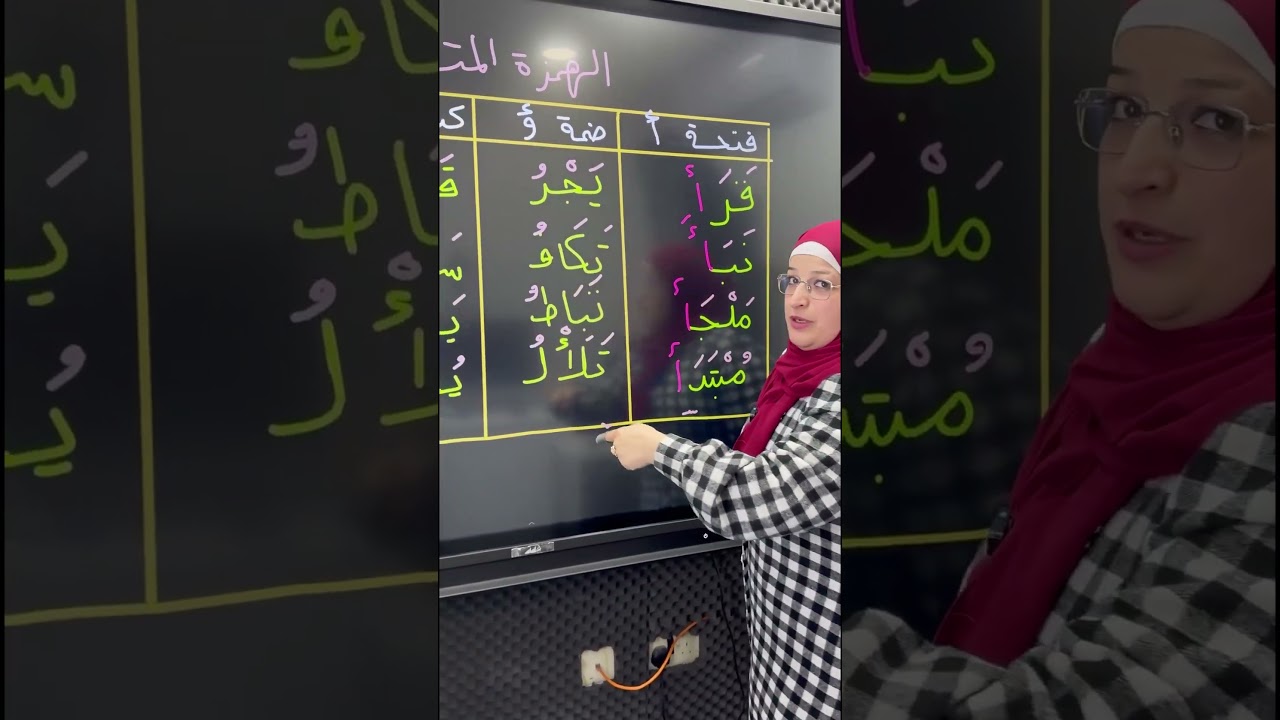 الهمزة المت
فتحة أ ضمة ؤ ك
قَرَأَ يَجْرُ قَ
نَبَأ تَكَافُ س
مَلْجَأ تَبَاطُ يَ
مُبْتَدَأ تَلَأْلُ يُ